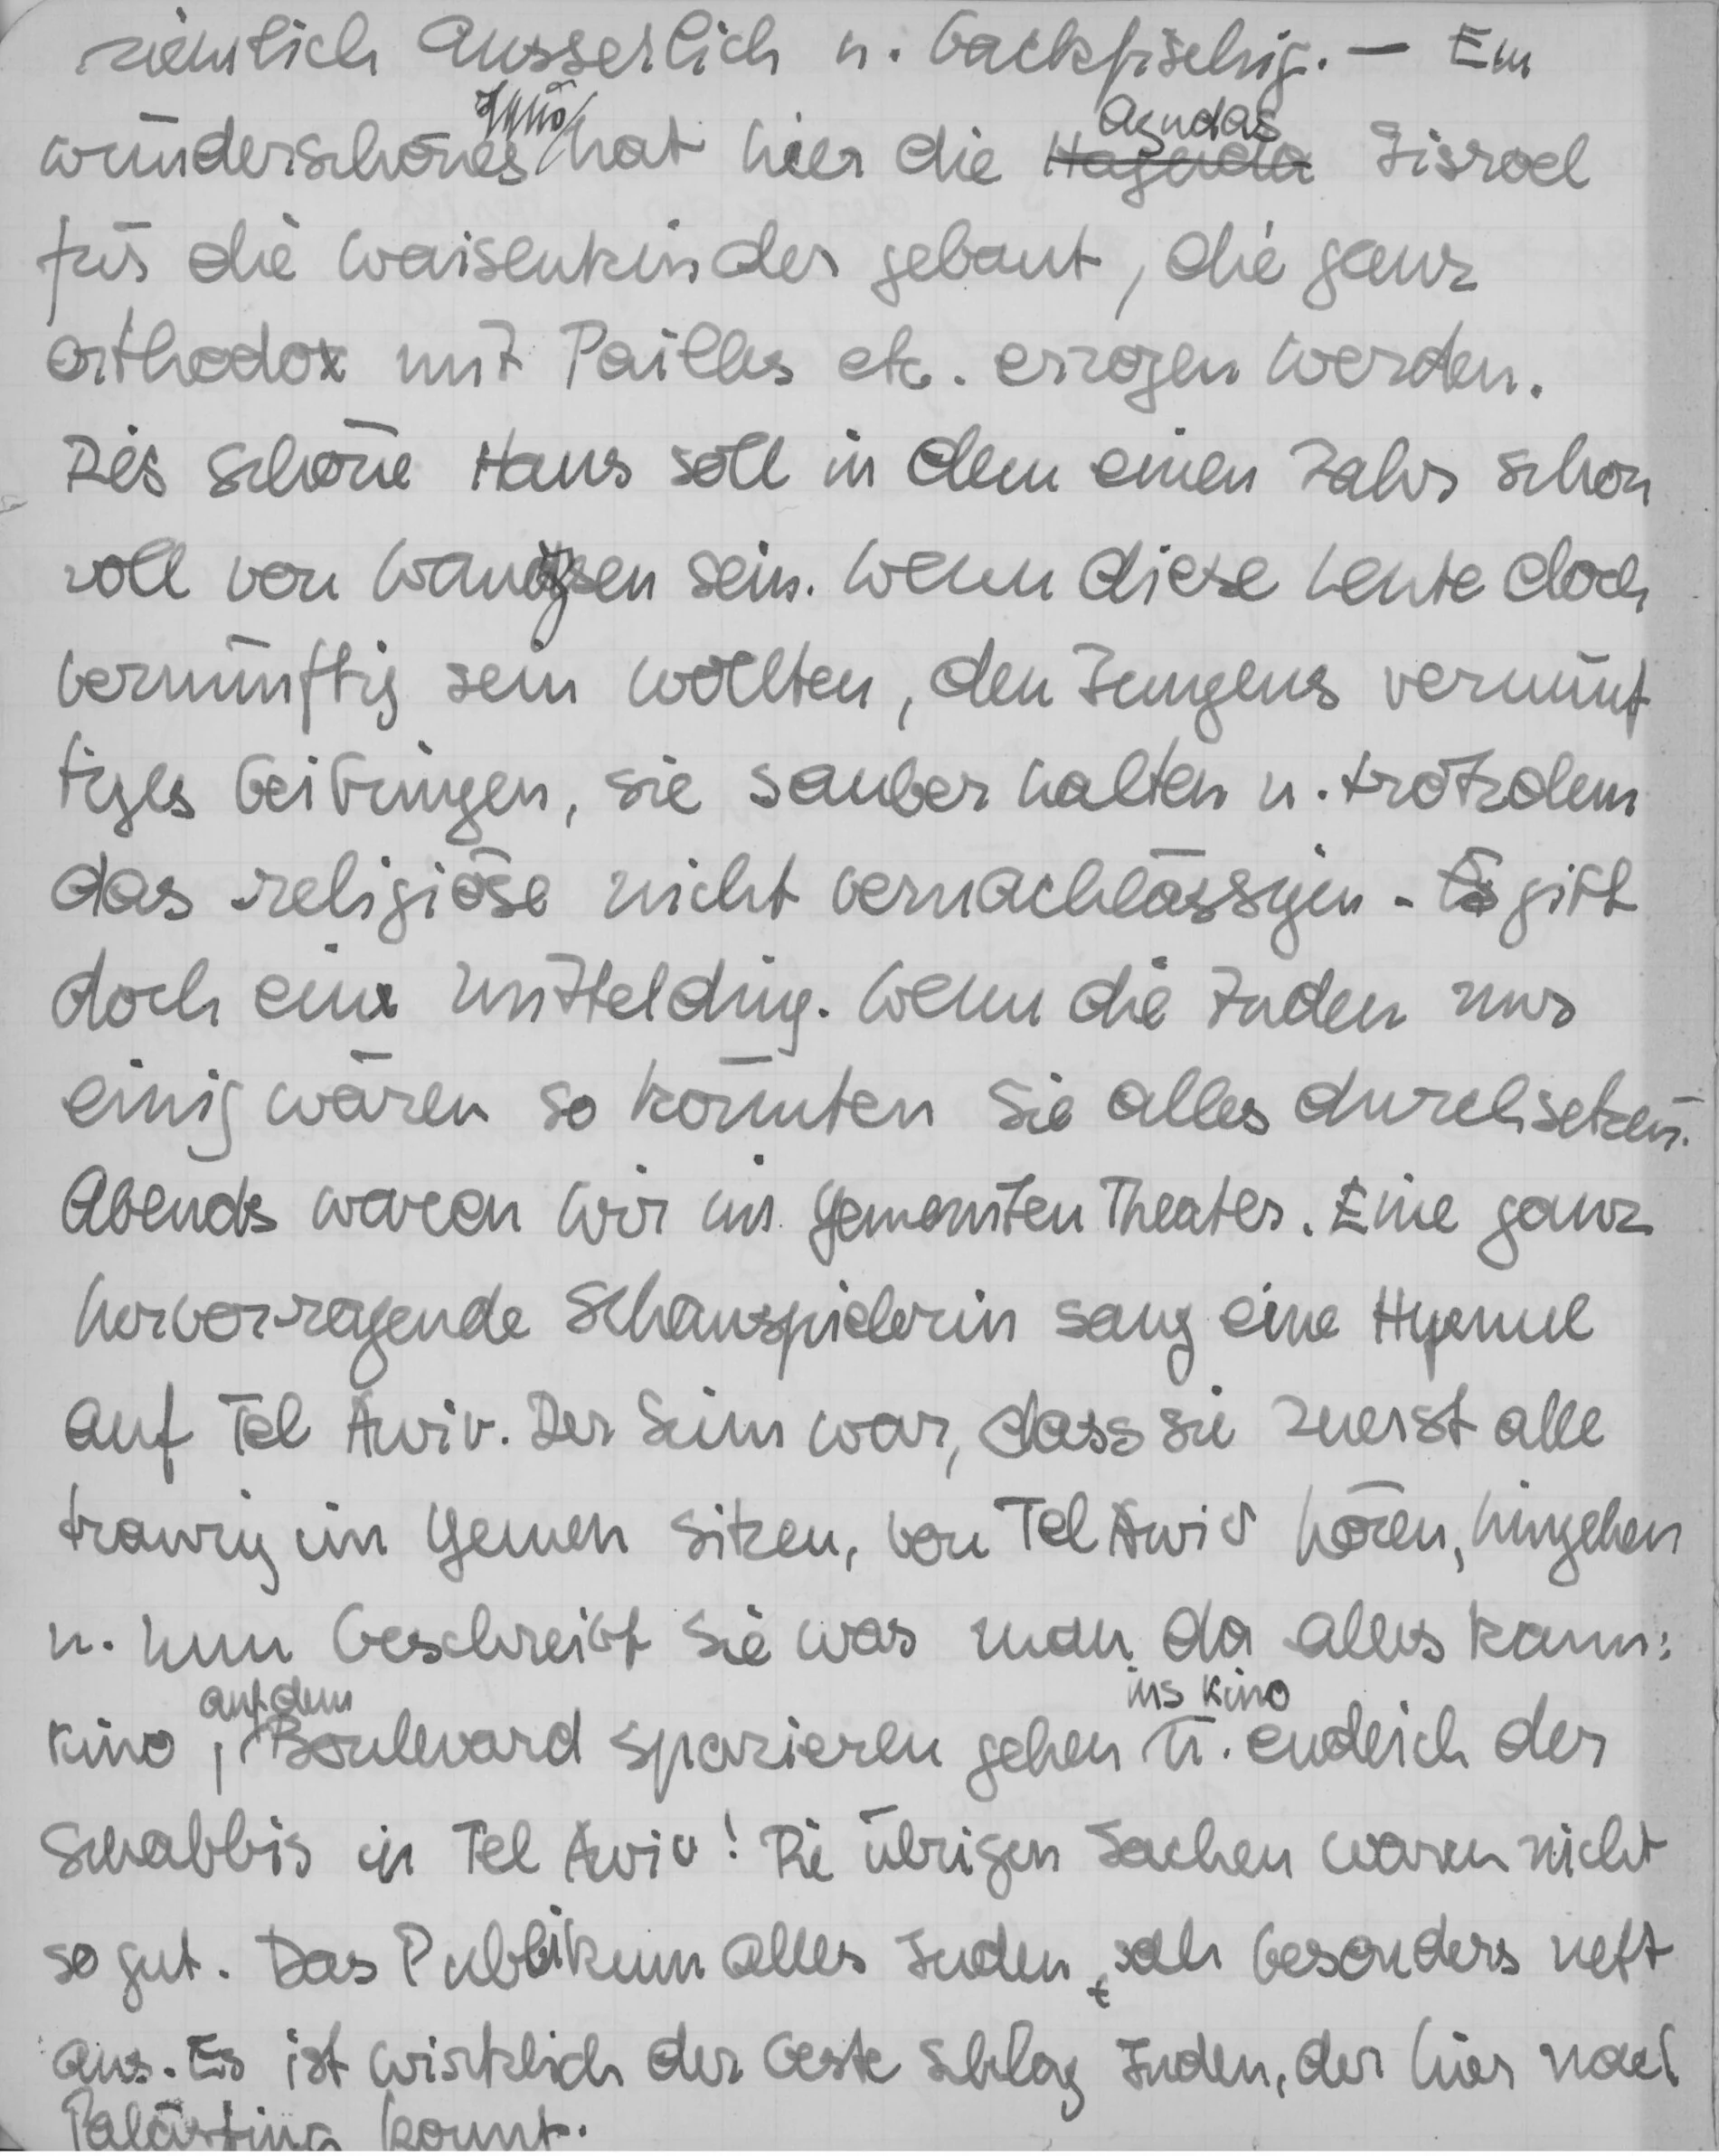 ziemlich äusserlich u. backfischig. — Ein
wunderschönes hat hier die Agudas Jisroel
für die Waisenkinder gebaut, die ganz
orthodox mit Pailles etc. erzogen werden.
Dies schöne Haus soll in dem einen Jahr schon
voll von Wanzen sein. Wenn diese Leute doch
vernünftig sein wollten, den Jungens vernünf
tiges beibringen, sie sauber halten u. trotzdem
das religiöse nicht vernachlässigen. Es gibt
doch ein Mittelding. Wenn die Juden nur
einig wären so könnten sie alles durchsetzen.
Abends waren wir im Yemeniten Theater. Eine ganz
hervorragende Schauspielerin sang eine Hymne
auf Tel Awiv. Der Sinn war, dass sie zuerst alle
traurig im Yemen sitzen, von Tel Awiv hören, hingehen
u. nun beschreibt sie was man da alles kann:
Kino, auf dem Boulevard spazieren gehen ins Kino u. endlich der
Schabbis in Tel Awiv! Die übrigen Sachen waren nicht
so gut. Das Publikum alles Juden, sah besonders nett
aus. Es ist wirklich der beste Schlag Juden, der hier nach
Palästina kommt.